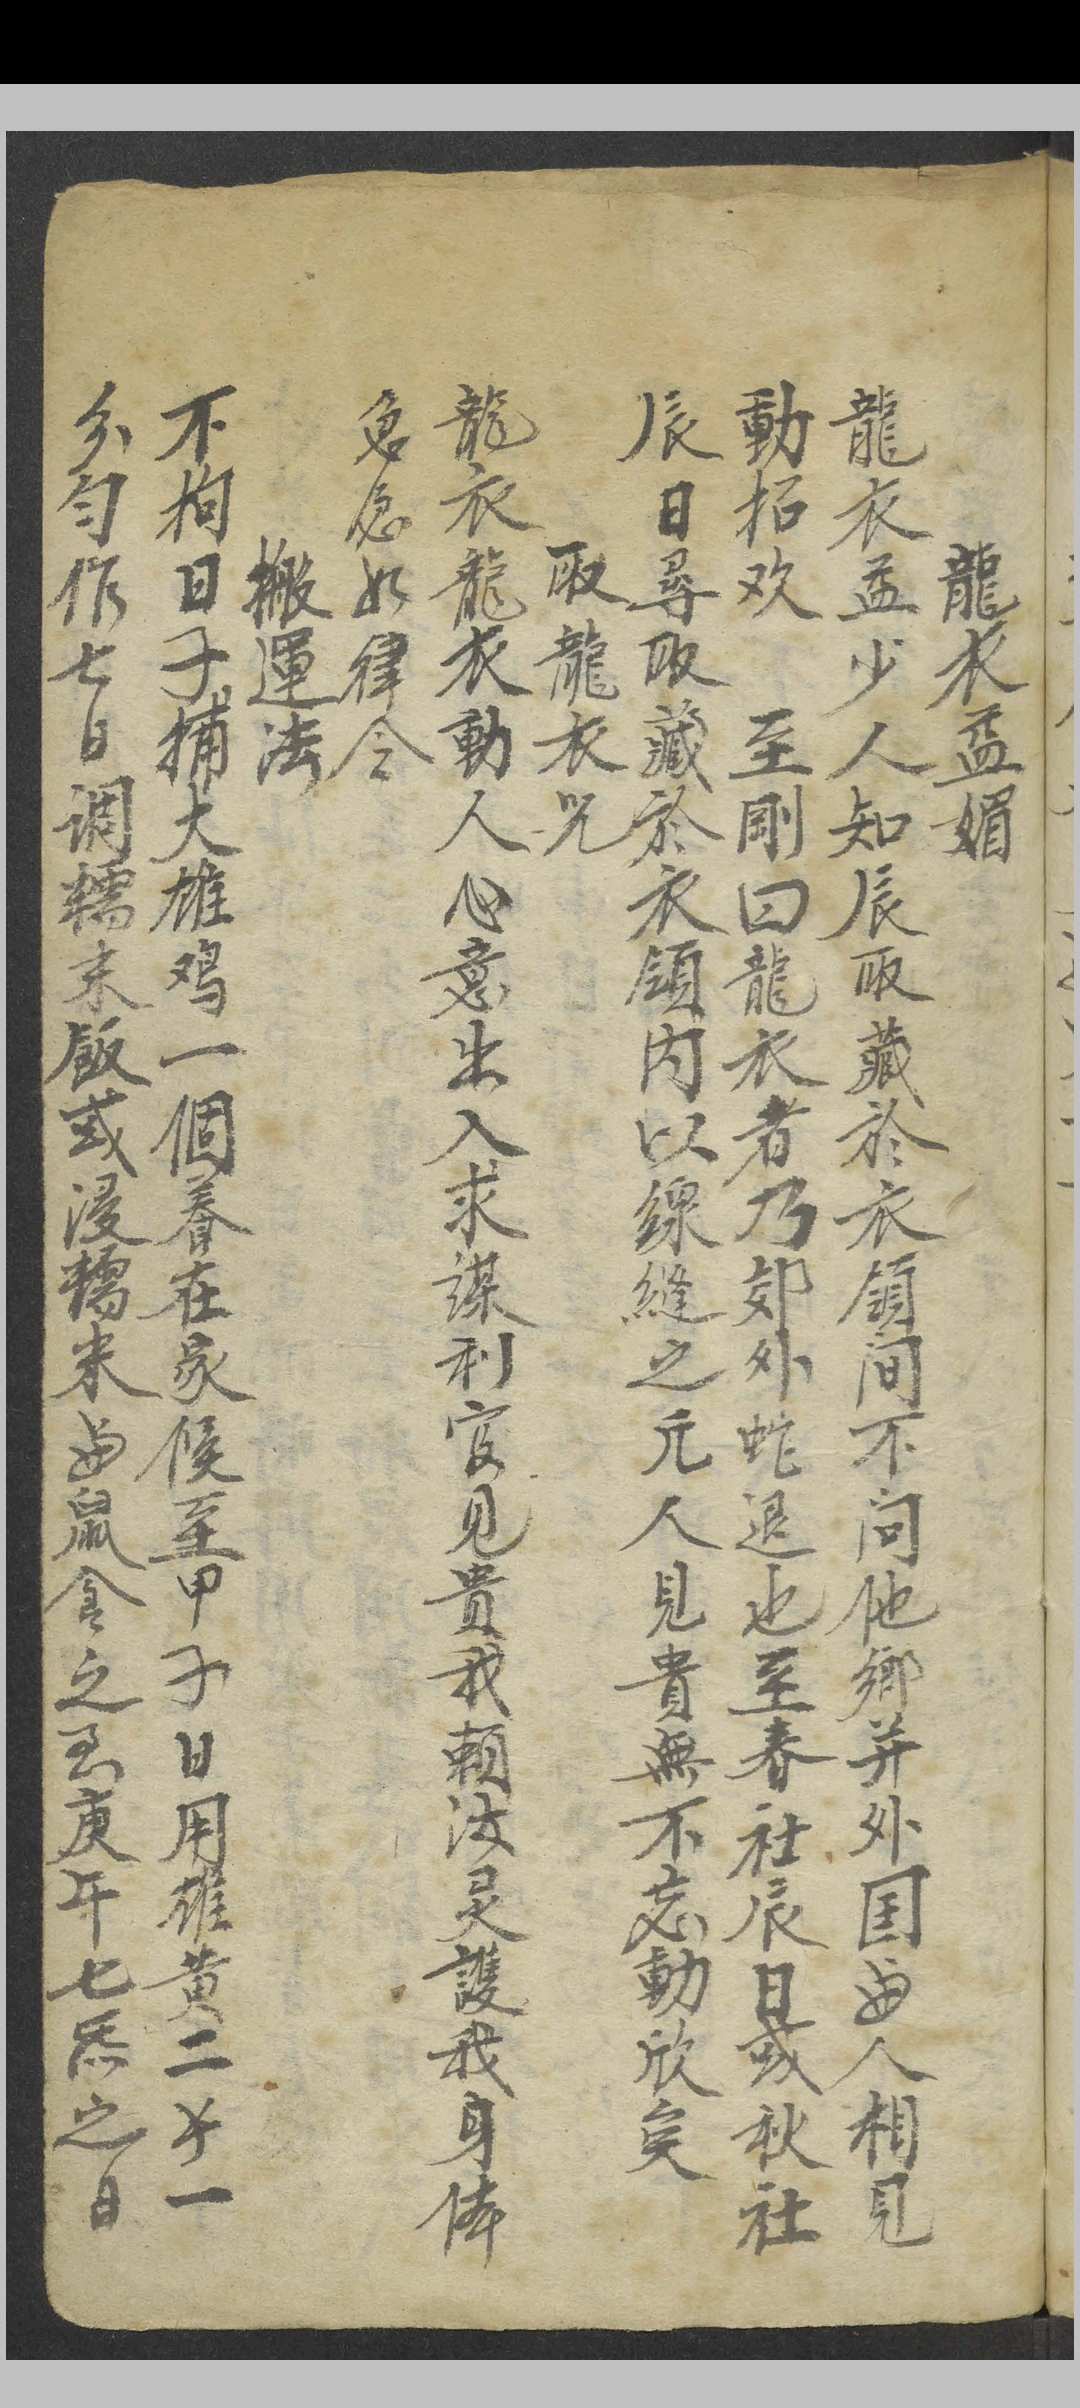 龍衣益媚
龍衣益少人知辰取藏於衣領间不问他鄉并外国与人相見
動招欢 至剛曰龍衣者乃郊外蛇退也至春社辰日或秋社
辰日尋取藏於衣領内以線縫之凡人見貴無不忘動欣矣
取龍衣咒
龍衣龍衣動人心意出入求謀利官見貴我賴汝灵護我身体
急急如律令
搬運法
不拘日子捕大雄鸡一個養在家候至甲子日用雄黄二分一
分匀作七日调糯米飯或浸糯米与鼠食之至庚午七炁之日